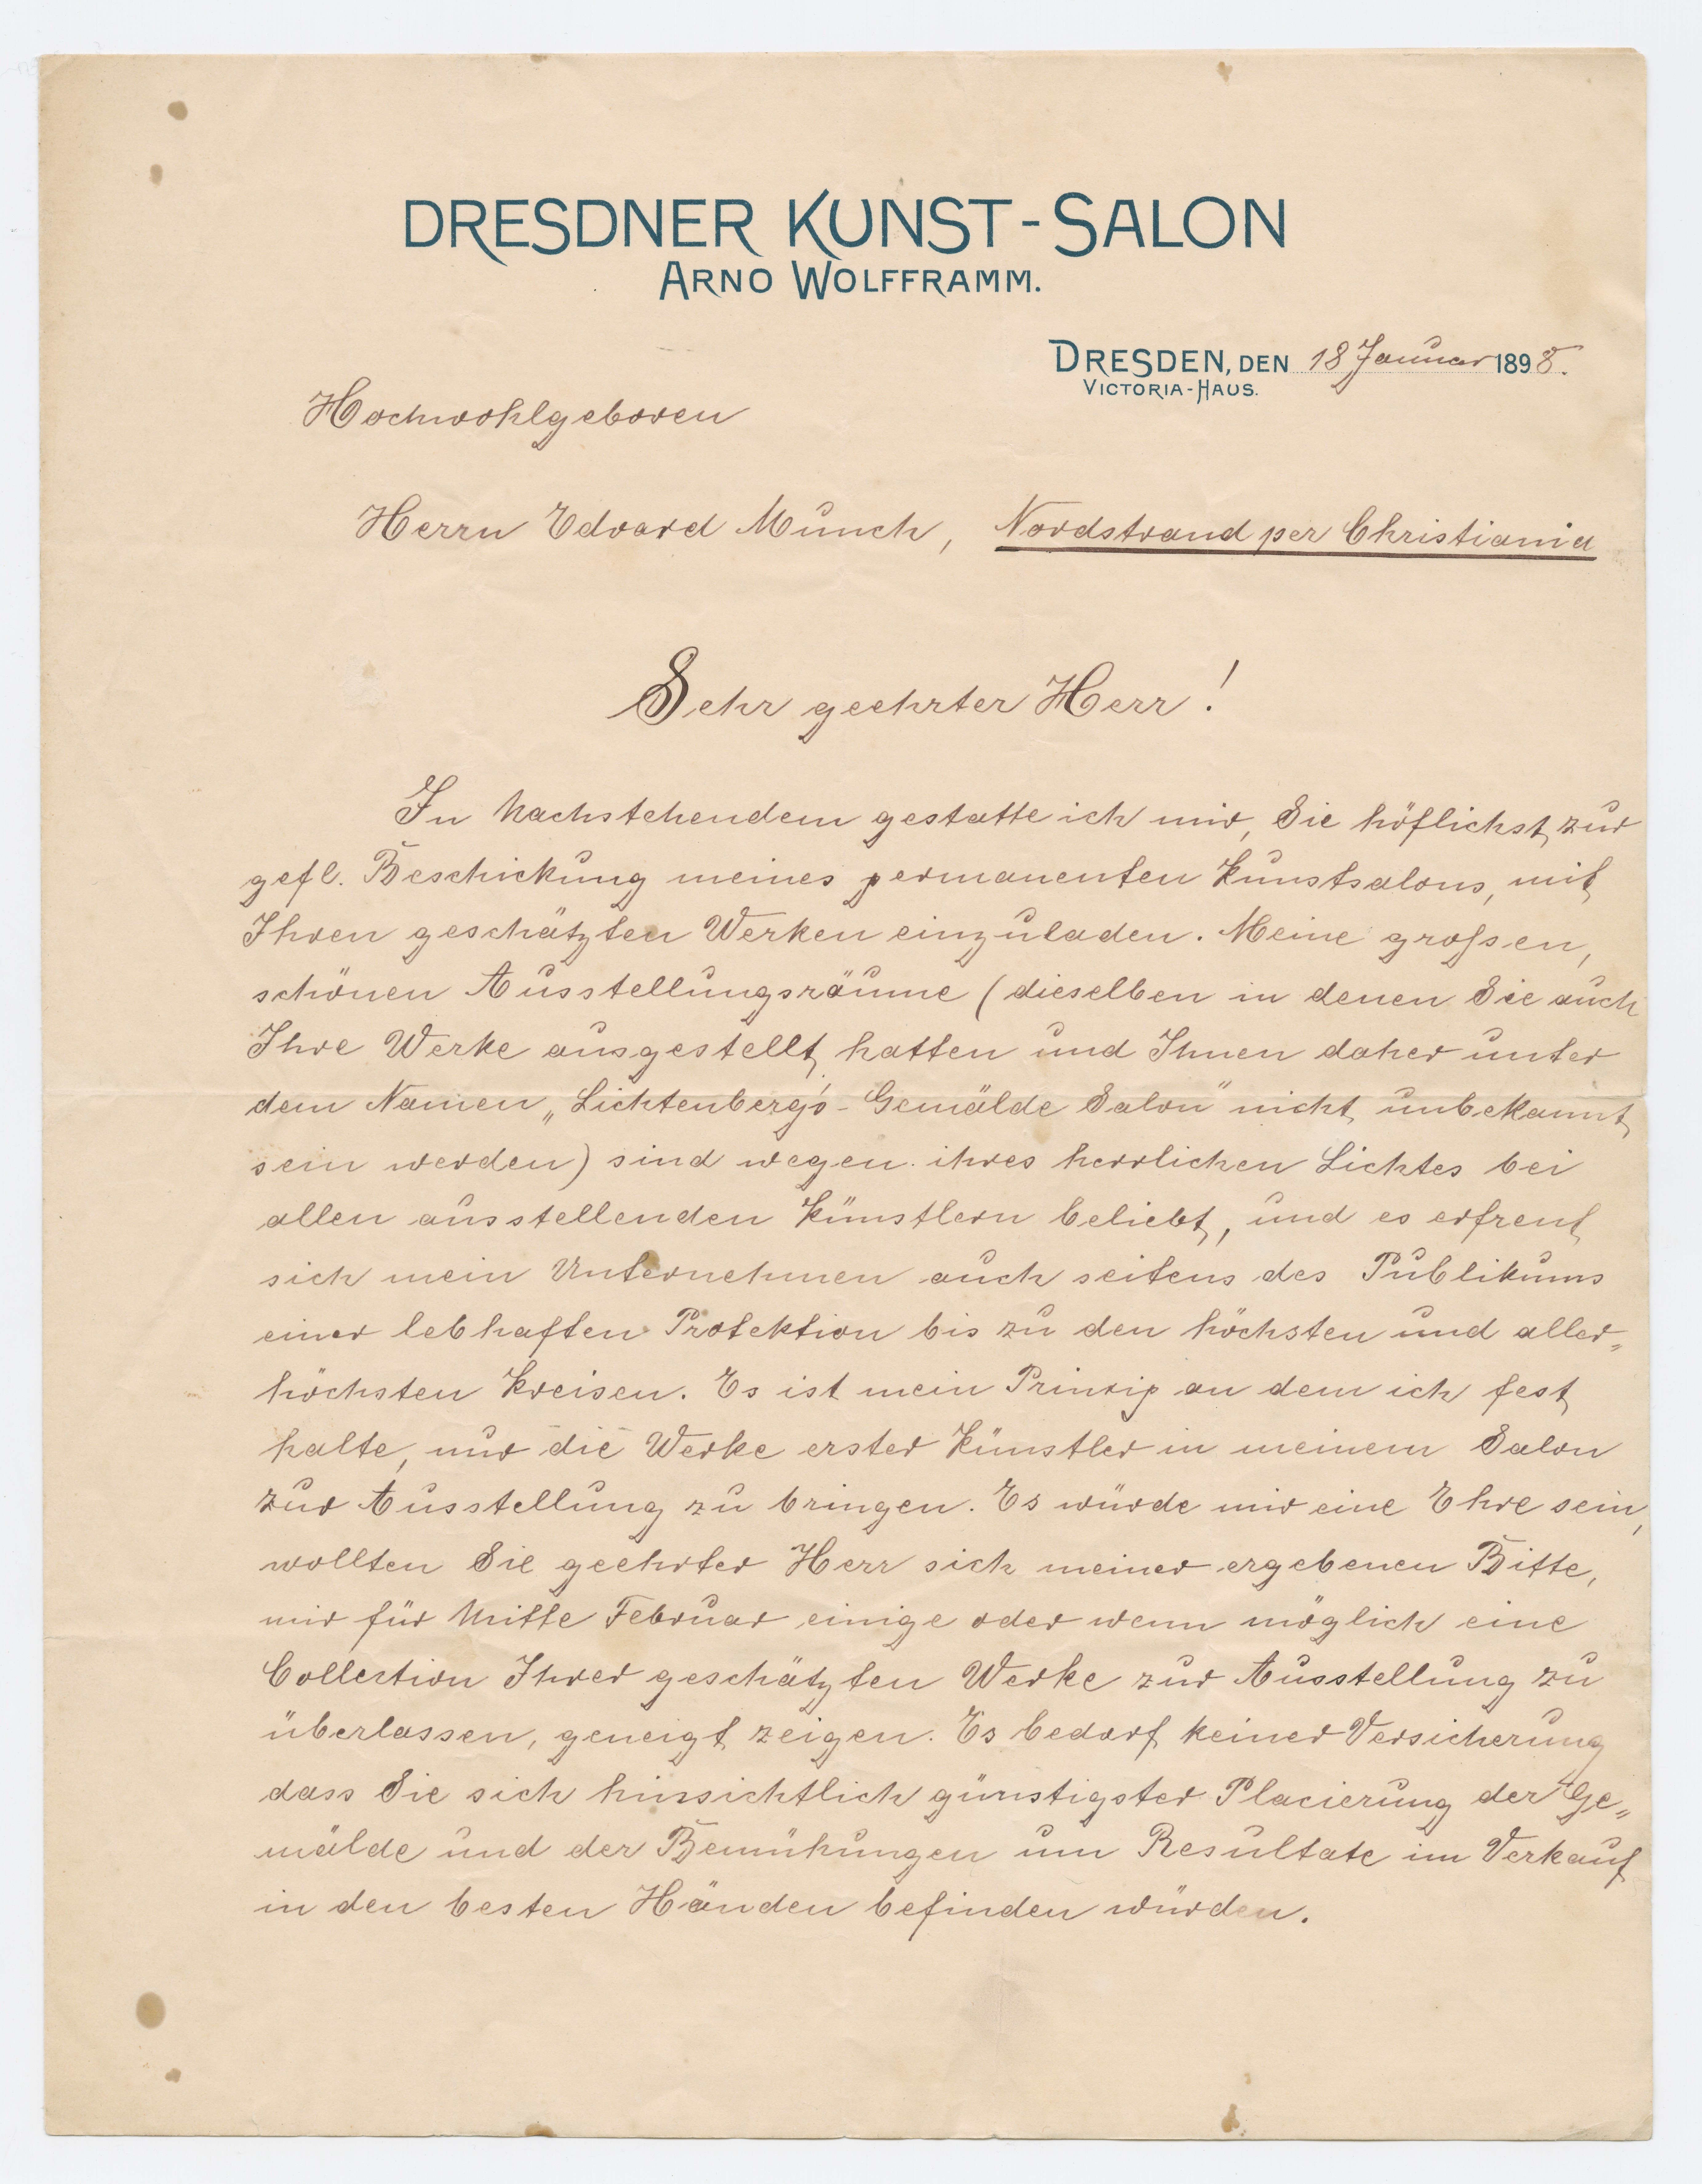 DRESDNER KUNST-SALON
ARNO WOLFFRAMM.
DRESDEN, DEN 18 Januar 1898.
VICTORIA-HAUS.
Hochwohlgeboren
Herrn Edvard Munch, Nordstrand per Christiania
Sehr geehrter Herr!
In Nachstehendem gestatte ich mir, Sie höflichst zur
gefl. Beschickung meines permanenten Kunstsalons, mit
Ihren geschätzten Werken einzuladen. Meine großen,
schönen Ausstellungsräume (dieselben in denen Sie auch
Ihre Werke ausgestellt hatten und Ihnen daher unter
dem Namen „Lichtenberg's-Gemälde Salon" nicht unbekannt
sein werden) sind wegen ihres herrlichen Lichtes bei
allen ausstellenden Künstlern beliebt, und es erfreut
sich mein Unternehmen auch seitens des Publikums
einer lebhaften Protektion bis zu den höchsten und aller„
höchsten Kreisen. Es ist mein Prinzip an dem ich fest
halte, nur die Werke erster Künstler in meinem Salon
zur Ausstellung zu bringen. Es würde mir eine Ehre sein,
wollten Sie geehrter Herr sich meiner ergebenen Bitte,
mir für Mitte Februar einige oder wenn möglich eine
Collection Ihrer geschätzten Werke zur Ausstellung zu
überlassen, geneigt zeigen. Es bedarf keiner Versicherung
dass Sie sich hinsichtlich günstigster Placierung der Ge„
mälde und der Bemühungen um Resultate im Verkauf
in den besten Händen befinden würden.